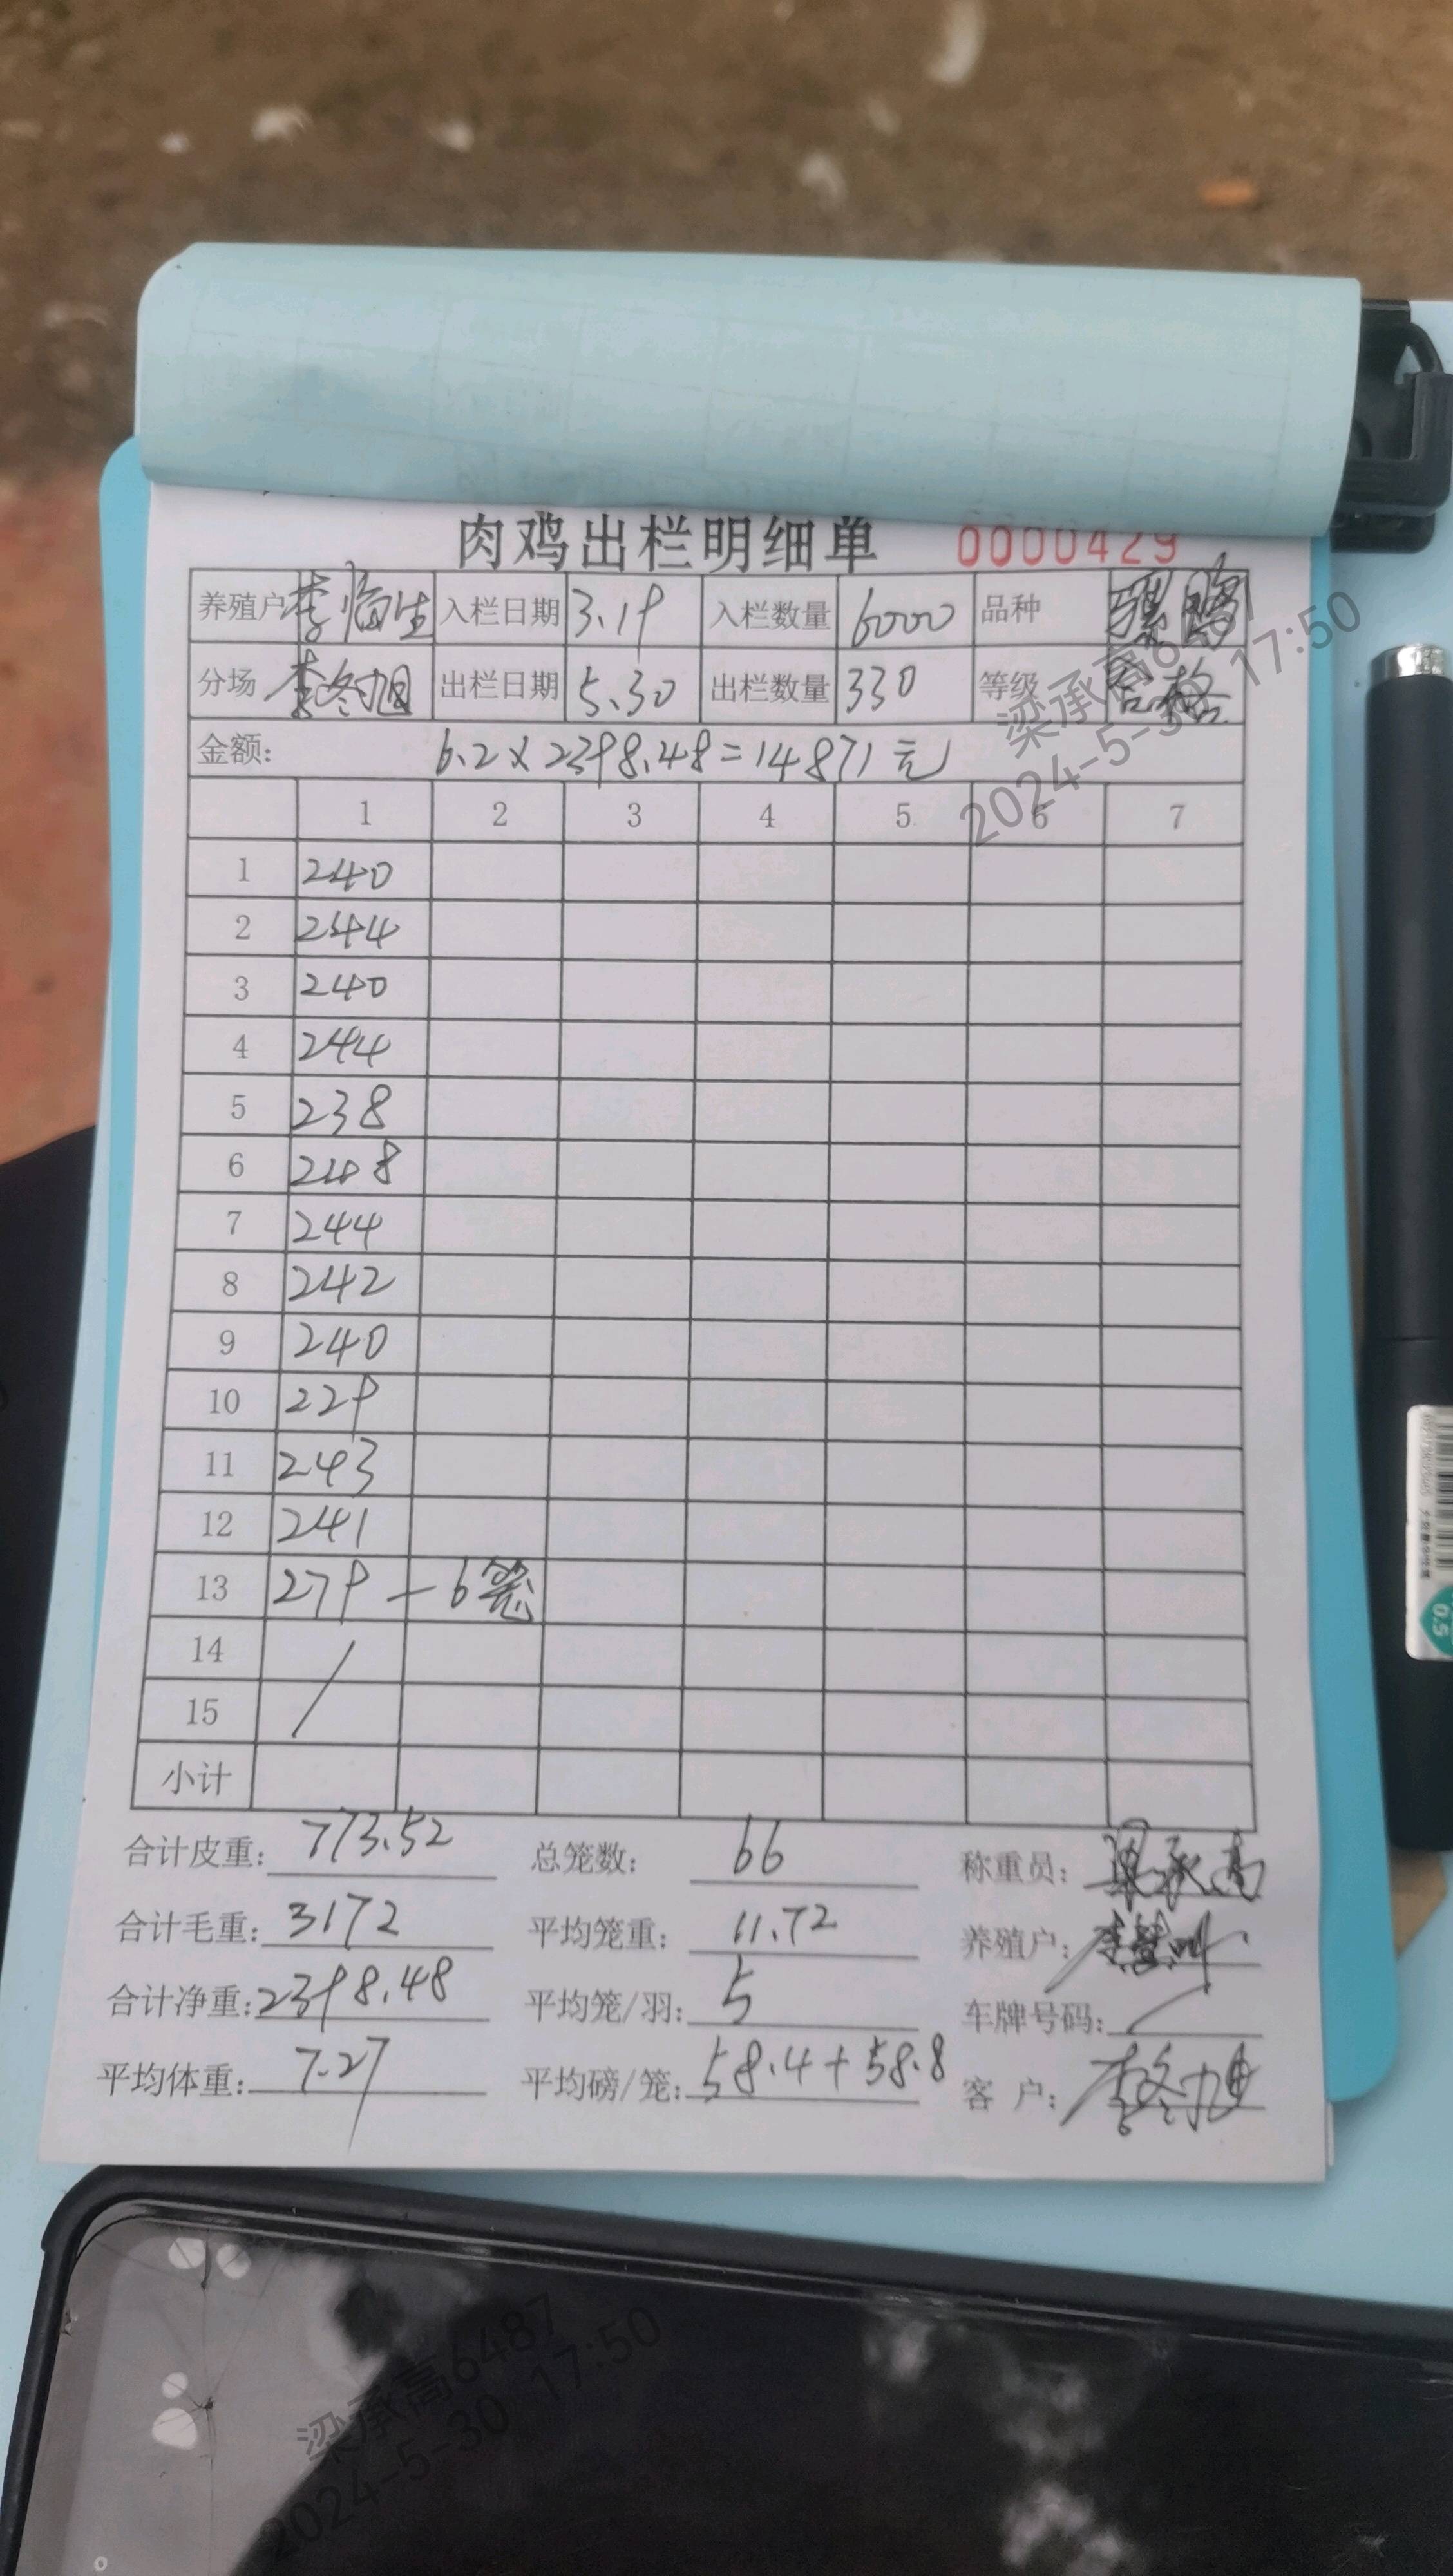 肉鸡出栏明细单 0000429
养殖户 李 生 入栏日期 3.19 入栏数量 6000 品种 骡鸭
分场 李冬旭 出栏日期 5.30 出栏数量 330 等级 合格
金额: 6.2×2398.48=14871元
1 2 3 4 5 6 7
1 240
2 244
3 240
4 244
5 238
6 248
7 244
8 242
9 240
10 229
11 243
12 241
13 279 - 6笼
14 /
15
小计
合计皮重: 773.52 总笼数: 66 称重员: 梁承高
合计毛重: 3172 平均笼重: 11.72 养殖户:
合计净重: 2398.48 平均笼/羽: 5 车牌号码: /
平均体重: 7.27 平均磅/笼: 58.4+58.8 客 户: 李冬旭
梁承高6487
2024-5-30 17:50
0.5
梁承高6487
2024-5-30 17:50